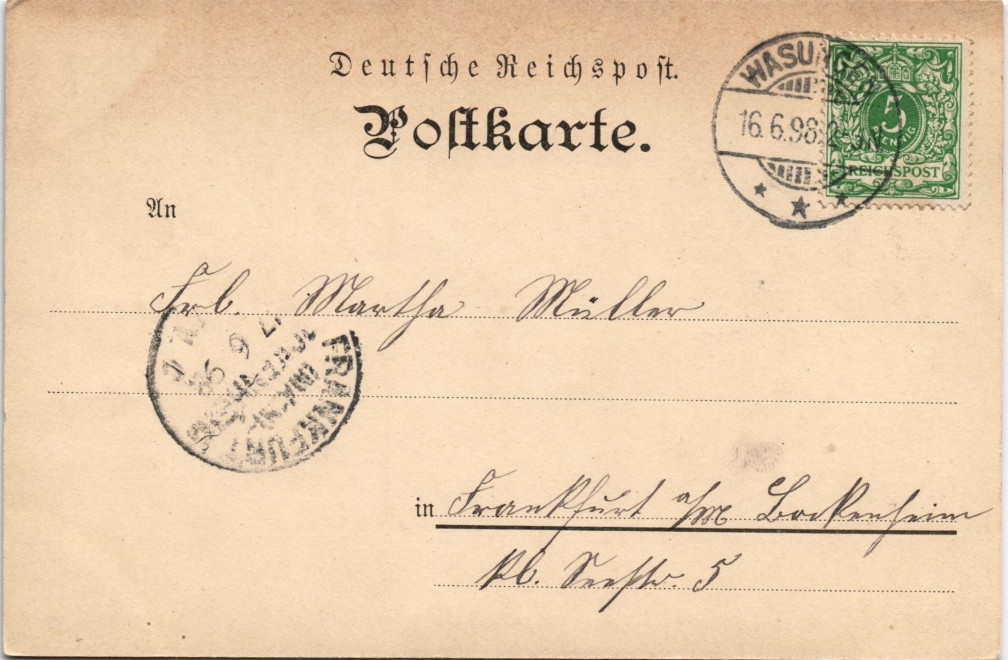 Deutsche Reichspost.
Postkarte.
WASUNGEN
16.6.98. 2-3N
5
PFENNIG
REICHSPOST
An
Frl. Martha Müller
FRANKFURT
(MAIN)
17 6 98
in Frankfurt a/M Bockenheim
kl. Seestr. 5